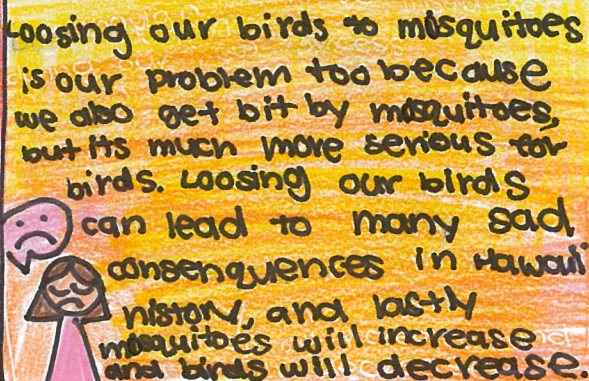 Loosing our birds to mosquitoes
is our problem too because
we also get bit by mosquitoes,
but its much more serious for
birds. Loosing our birds
can lead to many sad
consenquences in Hawaii
history, and lastly
mosquitoes will increase
and birds will decrease.